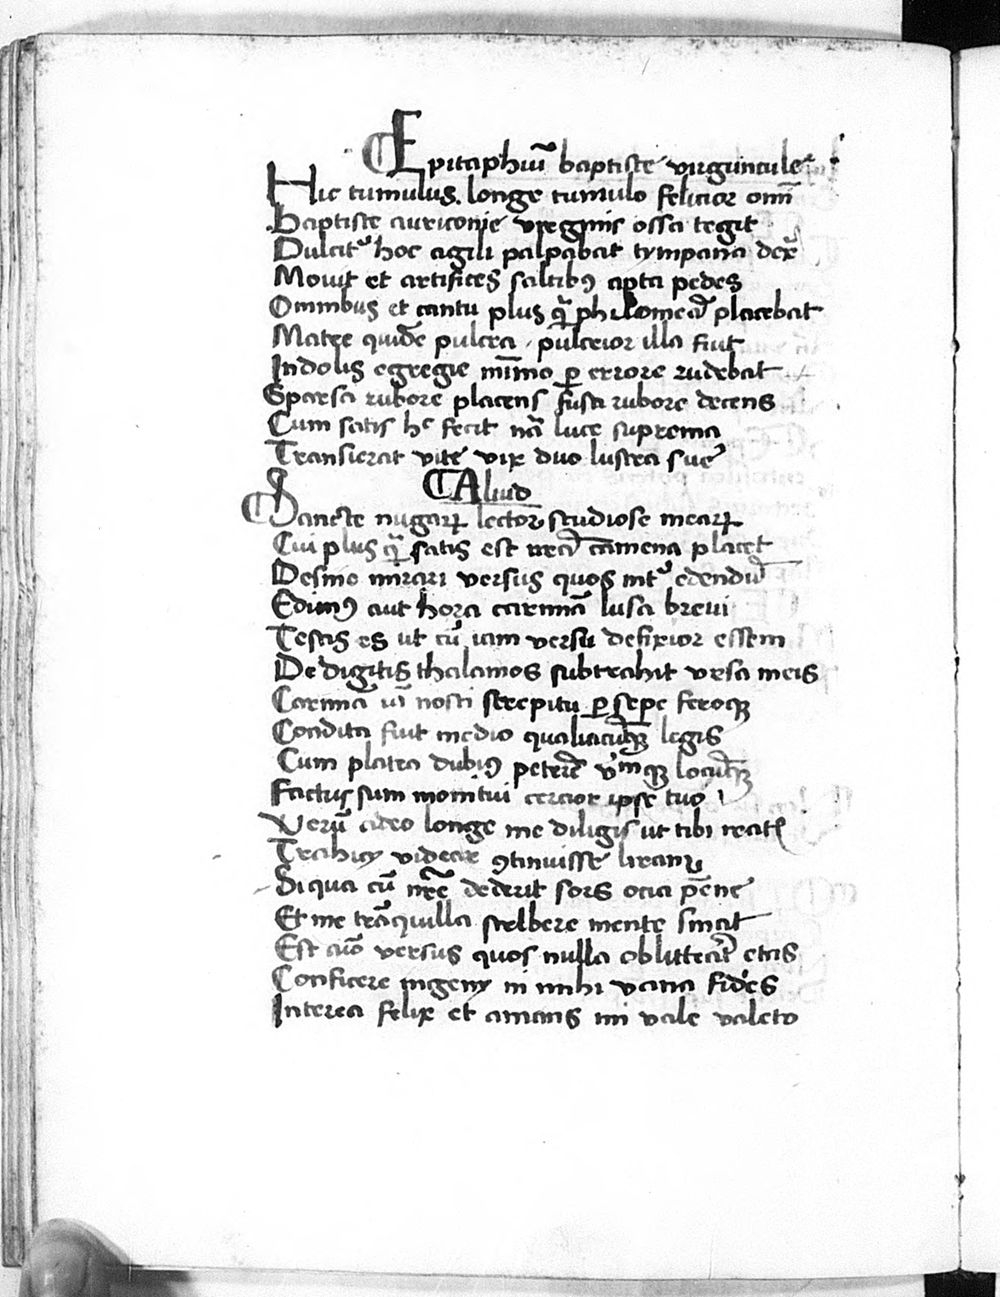 Epitaphiū baptiste virguncule
Hic tumulus longe tumulo felicior omī
Baptiste auriconie virginis ossa tegit
Dulcit᷑ hoc agili palpabat tympana dex᷑
Movit et artifices saltibꝯ apta pedes
Omnibus et cantu plus q̄ philomēa placebat
Matre quidē pulcra pulcrior illa fuit
Indolis egregie mīmo ꝑ errore rudebat
Sparsa rubore placens fusa rubore decens
Cum satis hc fecit nā luce suprema
Transierat vite vix duo lustra sue
Aliud
Sancte nugarꝝ lector studiose mearꝝ
Cui plus q̄ satis est nr̄a camena placet
Desino mirari versus quos int᷑ edendū
Edimꝯ aut hora carminā lusa brevi
Testis es ut cū iam versu defixior essem
De digitis thalamos subtrahit ursa meis
Carminā iā nosti strepitu ꝑ sepe feroqꝫ
Condita fiut medio qualiacūqꝫ legis
Cum platea dubiꝯ peterē vīnqꝫ locūqꝫ
Factus sum monitui cercior ipse tuo
Verū adeo longe me diligis ut tibi recte
Trahicy videar ꝯtinuisse liram
Si qua cū nr̄e dederit sors ocia pēne
Et me trāquilla scelbere mente sinat
Est aīo versus quos nulla oblitterāt etas
Conficere ingeny ni mihi vana fides
Interea felix et amans mi vale valeto